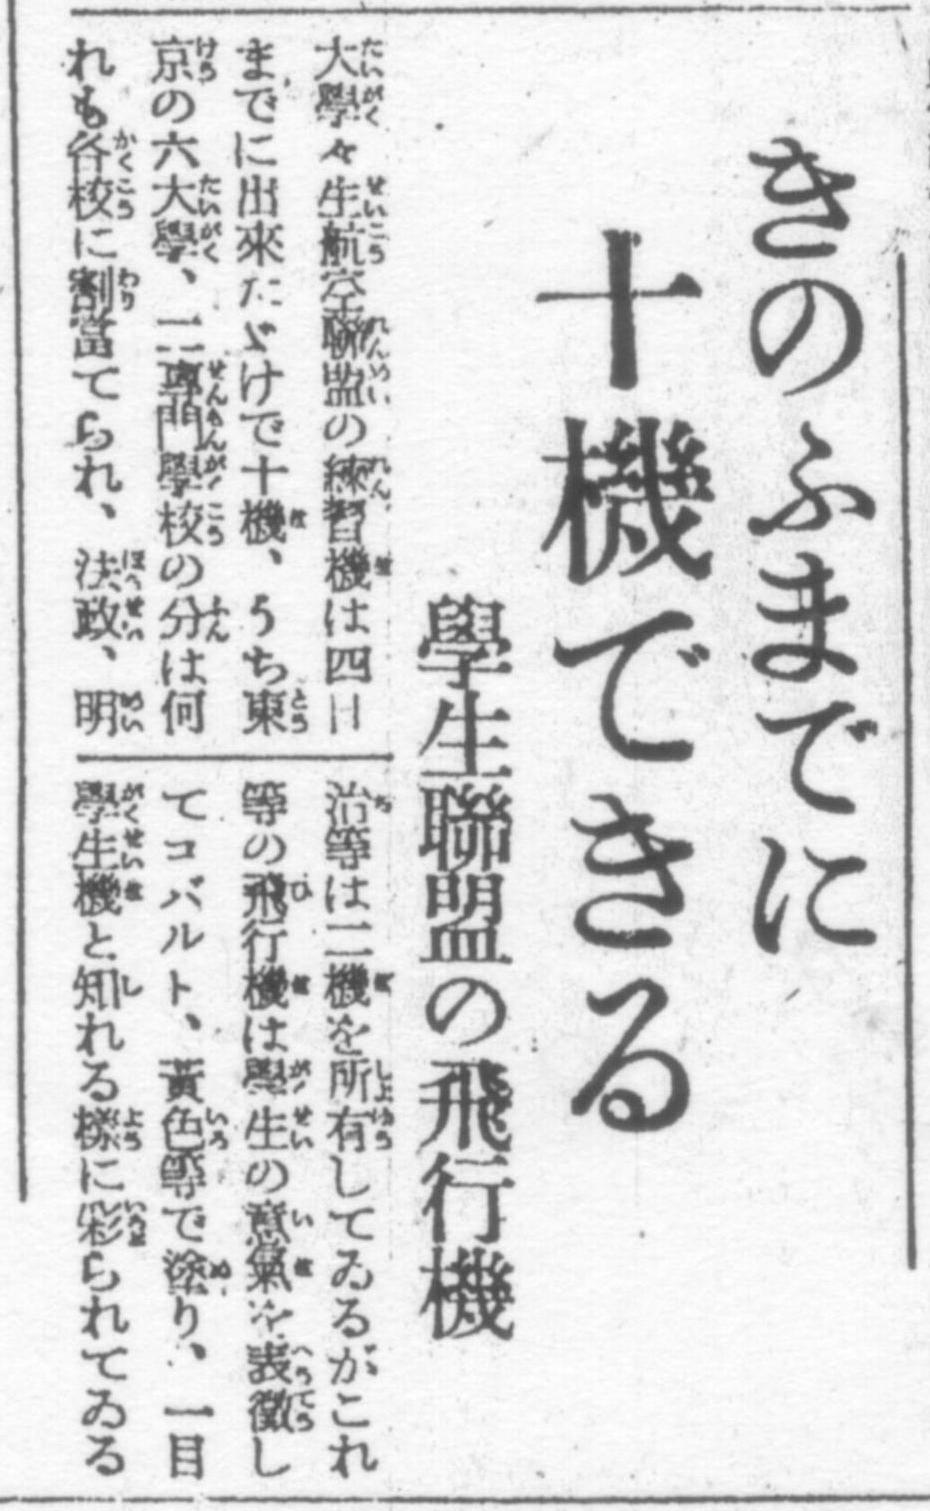 きのふまでに
十機できる
學生聯盟の飛行機
大學々生航空聯盟の練習機は四日
までに出來たゞけで十機、うち東
京の六大學、二專門學校の分は何
れも各校に割當てられ、法政、明
治等は二機を所有してゐるがこれ
等の飛行機は學生の意氣を表徵し
てコバルト、黃色等で塗り、一目
學生機と知れる樣に彩られてゐる